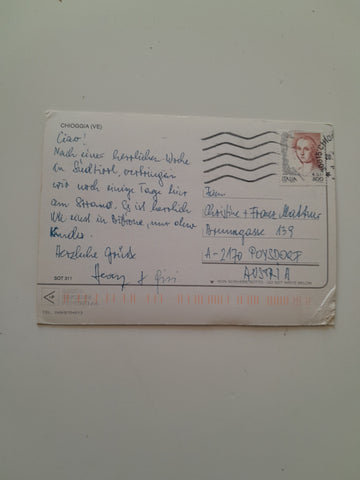 CHIOGGIA (VE)
Ciao!
Nach einer herrlichen Woche
in Südtirol, verbringen
wir noch einige Tage hier
am Strand. Es ist herrlich
wie einst in Bibione, nur ohne
Kinder.
Herzliche Grüße
SOT 311
ITALIA 800
Fam.
Christine + Franz
Brunngasse 139
A-2170 POYSDORF
AUSTRIA
NON SCRIVERE SOTTO - DO NOT WRITE BELOW